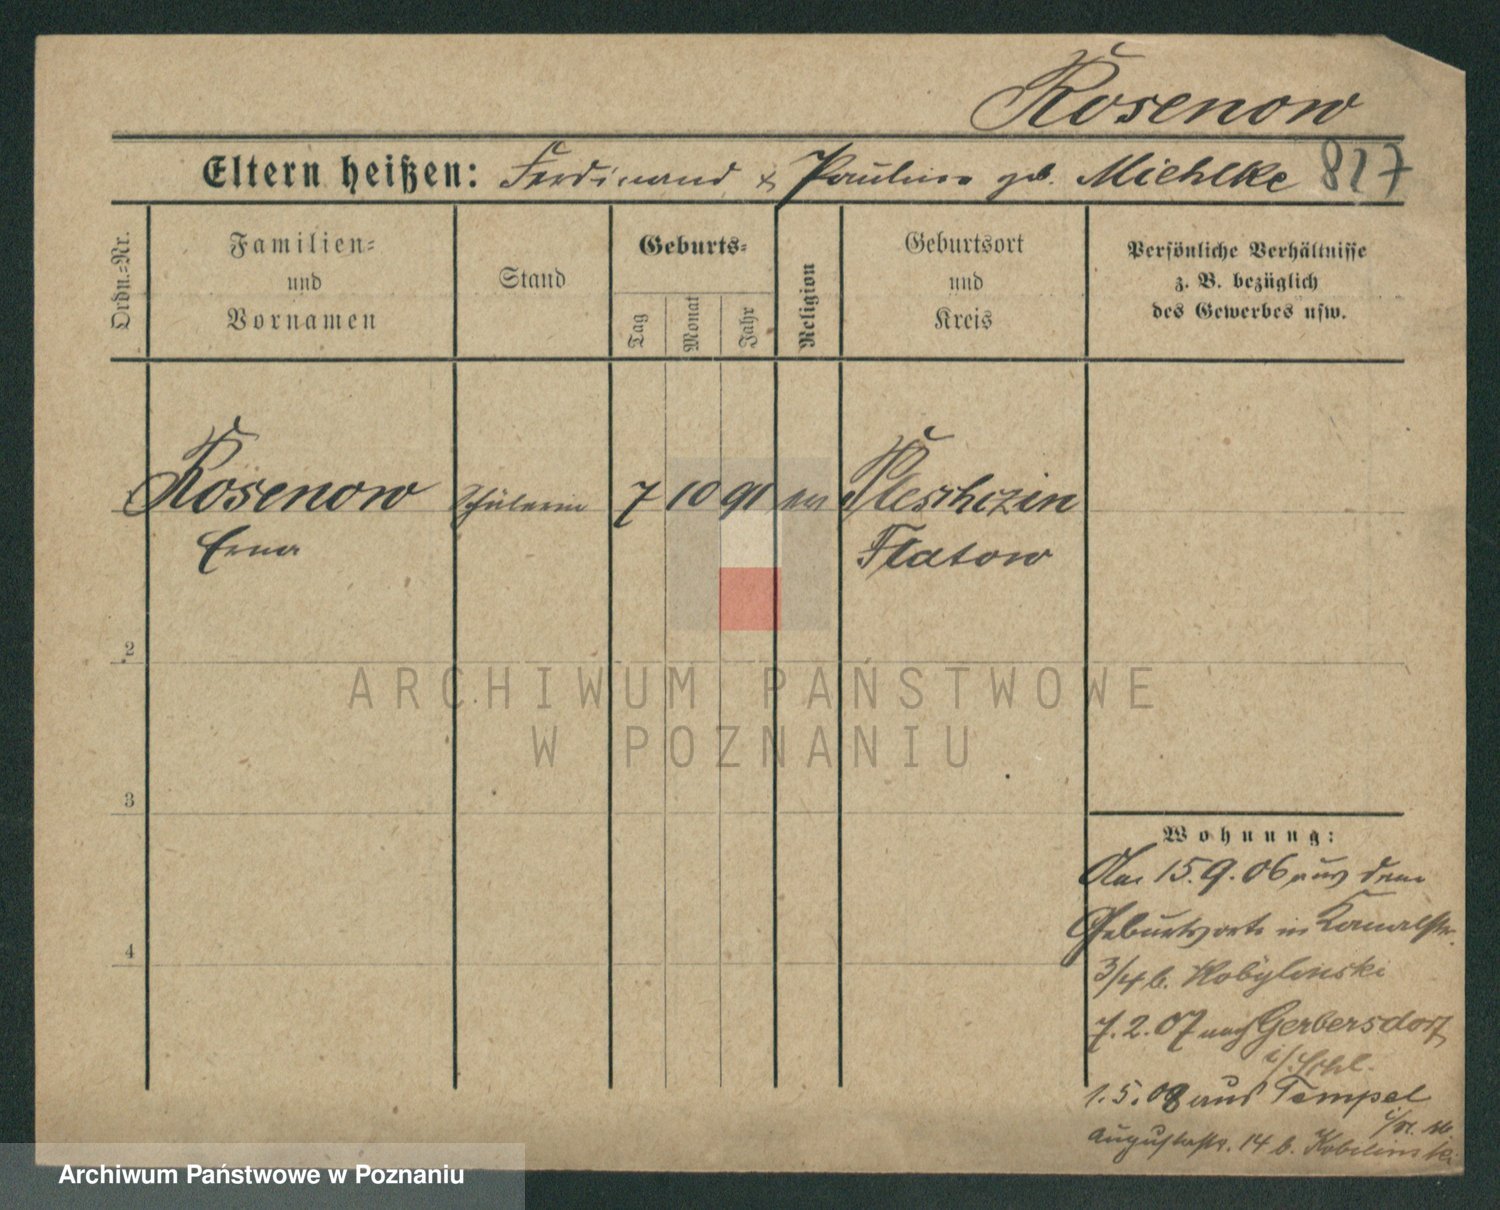 Rosenow
Eltern heißen: Ferdinand & Pauline geb. Miehlke 827
Ordn.-Nr.
Familien- und Vornamen
Stand
Geburts-
Tag
Monat
Jahr
Religion
Geburtsort und Kreis
Persönliche Verhältnisse
z. B. bezüglich
des Gewerbes usw.
Rosenow Schülerin 7 10 91 ev
Erna Flatow
2
ARCHIWUM PAŃSTWOWE
W POZNANIU
3
Wohnung:
15.9.06 aus dem
Geburtsorte in Kanalstr.
4
3/4 b. Kobylinski
7.2.07 nach Gerbersdorf
i/Schl.
1.5.08 aus Tempel
Augustastr. 14 b. Kobilinski
Archiwum Państwowe w Poznaniu